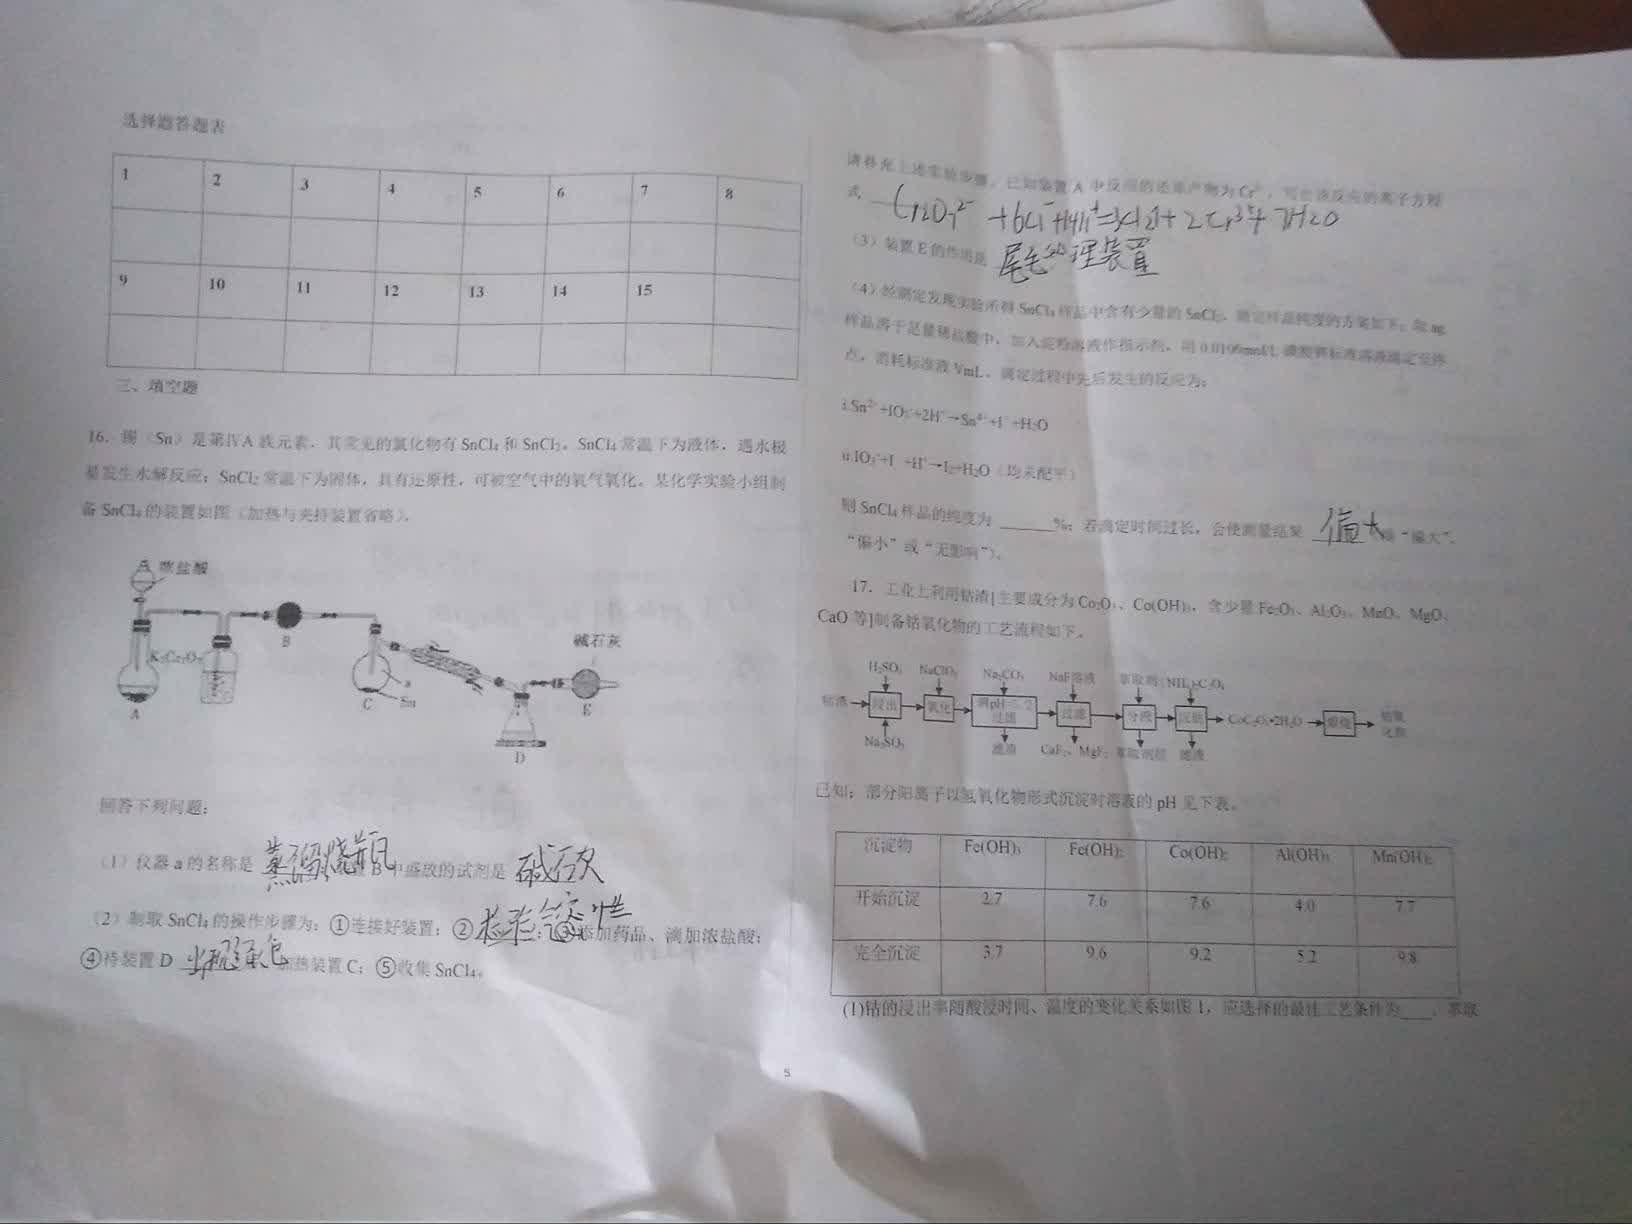 选择题答题表
1 2 3 4 5 6 7 8
9 10 11 12 13 14 15
三、填空题
16．锡（Sn）是第ⅣA 族元素．其常见的氯化物有 SnCl₄ 和 SnCl₂。SnCl₄ 常温下为液体，遇水极
易发生水解反应；SnCl₂ 常温下为固体，具有还原性，可被空气中的氧气氧化。某化学实验小组制
备 SnCl₄ 的装置如图（加热与夹持装置省略）。
浓盐酸
碱石灰
K₂Cr₂O₇
A B C a Sn D E
回答下列问题：
（1）仪器 a 的名称是 蒸馏烧瓶 B 中盛放的试剂是 碱石灰
（2）制取 SnCl₄ 的操作步骤为：①连接好装置；② 检验气密性；③添加药品、滴加浓盐酸；
④待装置 D 出现 加热装置 C；⑤收集 SnCl₄。
请补充上述实验步骤，已知装置 A 中反应的还原产物为 Cr³⁺，写出该反应的离子方程
式 Cr2O7²⁻ +6Cl⁻+14H⁺=3Cl2↑+2Cr³⁺+7H2O
（3）装置 E 的作用是 尾气处理装置
（4）经测定发现实验所得 SnCl₄ 样品中含有少量的 SnCl₂，测定样品纯度的方案如下：取 ag
样品溶于足量稀盐酸中，加入淀粉溶液作指示剂，用 0.0100mol/L 碘酸钾标准溶液滴定至终
点，消耗标准液 VmL。滴定过程中先后发生的反应为：
i.Sn²⁺+IO₃⁻+2H⁺→Sn⁴⁺+I⁻+H₂O
ii.IO₃⁻+I⁻+H⁺→I₂+H₂O（均未配平）
则 SnCl₄ 样品的纯度为 ______%；若滴定时间过长，会使测量结果 偏大 “偏大”、
“偏小”或“无影响”）。
17．工业上利用钴渣[主要成分为 Co₂O₃、Co(OH)₃，含少量 Fe₂O₃、Al₂O₃、MnO、MgO、
CaO 等]制备钴氧化物的工艺流程如下。
H₂SO₄ NaClO₃ Na₂CO₃ NaF溶液 萃取剂 (NH₄)₂C₂O₄
钴渣 浸出 氧化 过滤 过滤 分液 沉钴 CoC₂O₄•2H₂O 煅烧 钴氧化物
Na₂SO₃ 滤渣 CaF₂、MgF₂ 萃取剂层 滤液
已知：部分阳离子以氢氧化物形式沉淀时溶液的 pH 见下表。
沉淀物 Fe(OH)₃ Fe(OH)₂ Co(OH)₂ Al(OH)₃ Mn(OH)₂
开始沉淀 2.7 7.6 7.6 4.0 7.7
完全沉淀 3.7 9.6 9.2 5.2 9.8
(1)钴的浸出率随酸浸时间、温度的变化关系如图 1，应选择的最佳工艺条件为____、萃取
5